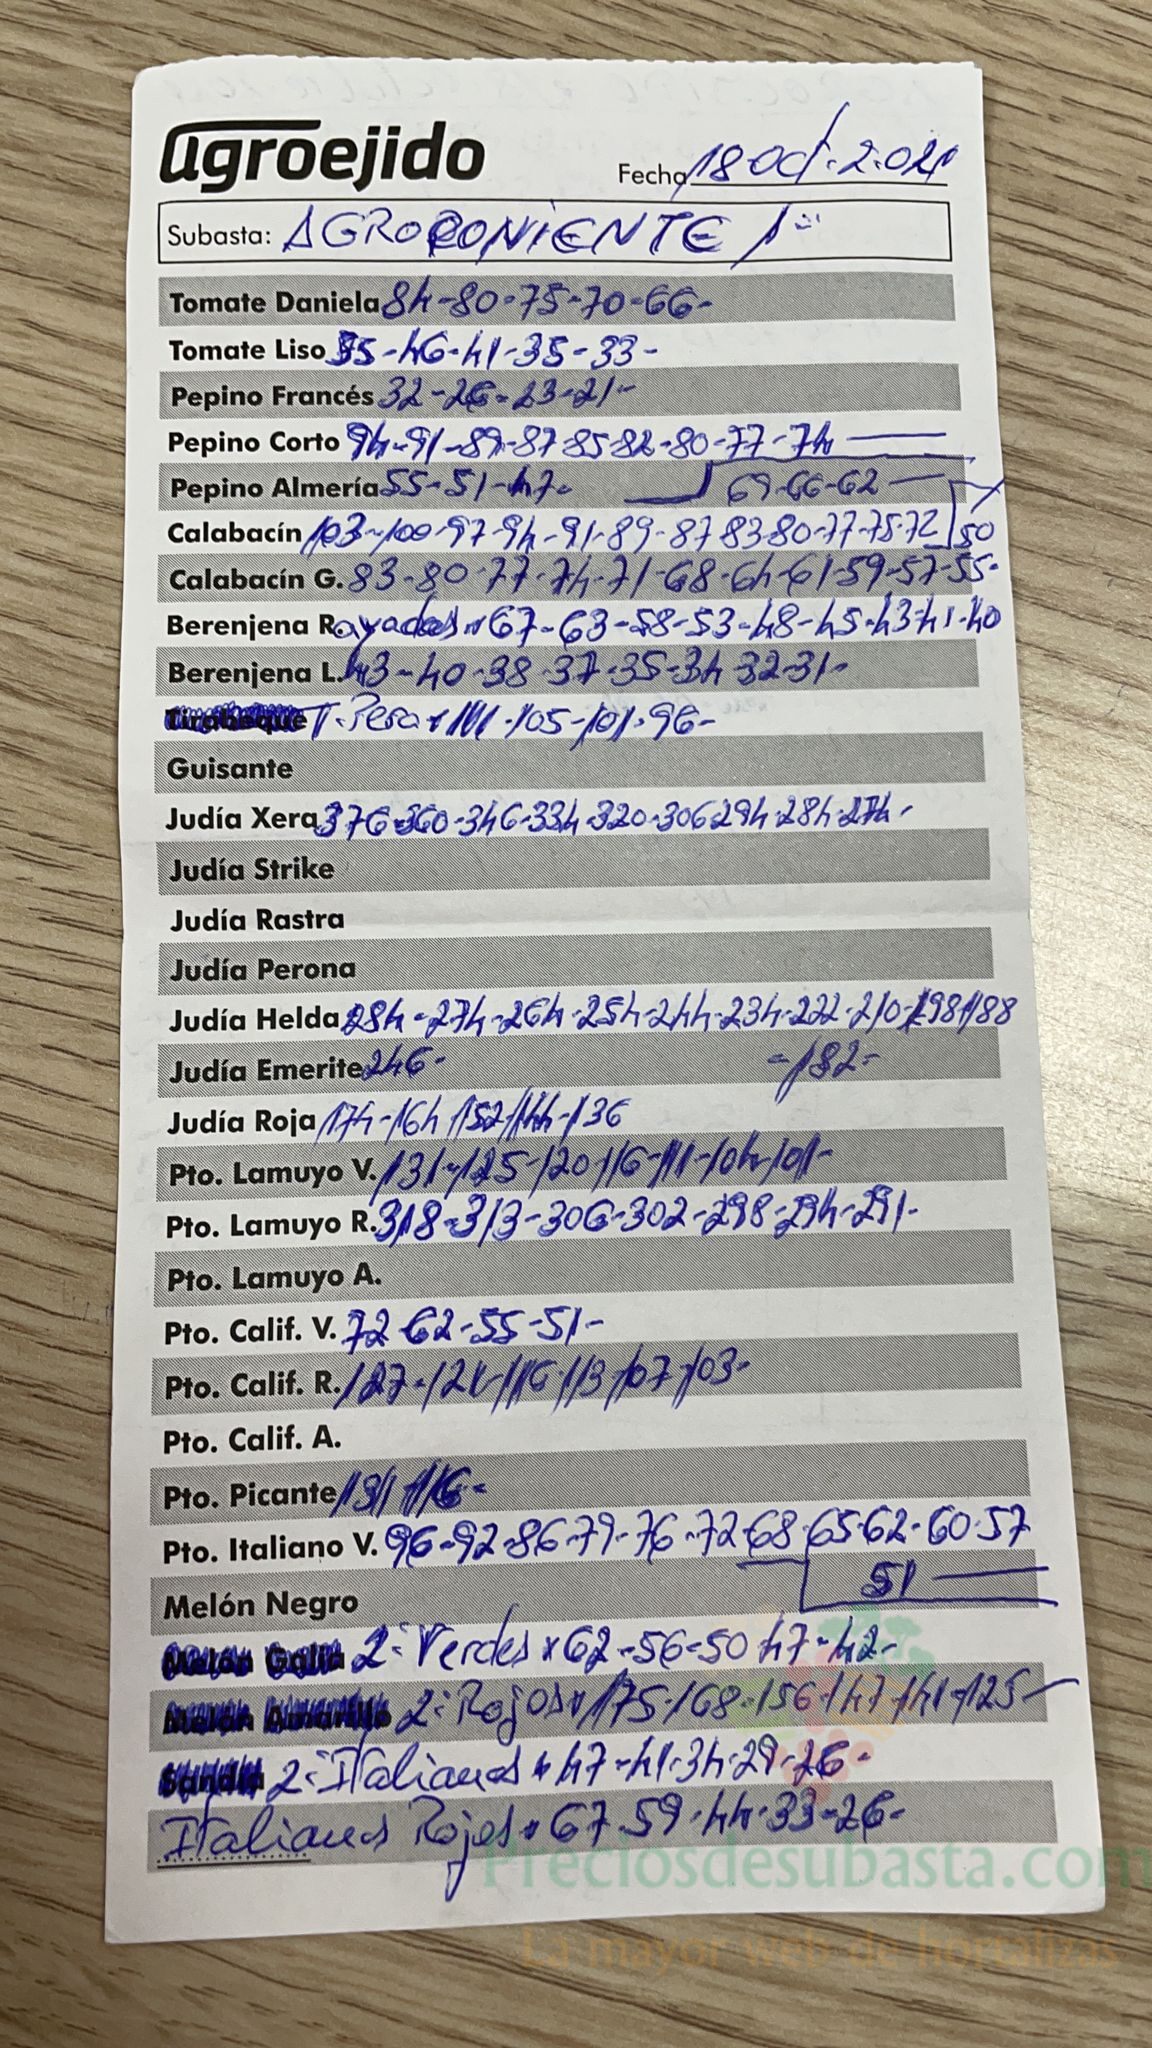 agroejido
Fecha 18 Oct. 2.021
Subasta: AGROPONIENTE 1ª
Tomate Daniela 84-80-75-70-66-
Tomate Liso 55-46-41-35-33-
Pepino Francés 32-26-23-21-
Pepino Corto 94-91-89-87-85-82-80-77-74
69-66-62
Pepino Almería 55-51-47-
Calabacín 103-100-97-94-91-89-87-83-80-77-75-72 50
Calabacín G. 83-80-77-74-71-68-64-61-59-57-55-
Berenjena R.ayadas 67-63-58-53-48-45-43-41-40
Berenjena L. 43-40-38-37-35-34-32-31-
Tirabeque T. Pera 111-105-101-96-
Guisante
Judía Xera 376-360-346-334-320-306-294-284-274-
Judía Strike
Judía Rastra
Judía Perona
Judía Helda 284-274-264-254-244-234-222-210-198-188
-182-
Judía Emerite 246-
Judía Roja 174-164-152-144-136
Pto. Lamuyo V. 131-125-120-116-111-104-101-
Pto. Lamuyo R. 318-313-306-302-298-294-291-
Pto. Lamuyo A.
Pto. Calif. V. 72-62-55-51-
Pto. Calif. R. 127-121-116-113-107-103-
Pto. Calif. A.
Pto. Picante 131-116-
Pto. Italiano V. 96-92-86-79-76-72-68-65-62-60-57
51
Melón Negro
Melón Galia 2ª Verdes 62-56-50-47-42-
Melón Amarillo 2ª Rojos 175-168-156-147-141-125-
Sandía 2ª Italianos 47-41-34-29-26-
Italianos Rojos 67-59-44-33-26-
Preciosdesubasta.com
La mayor web de hortalizas